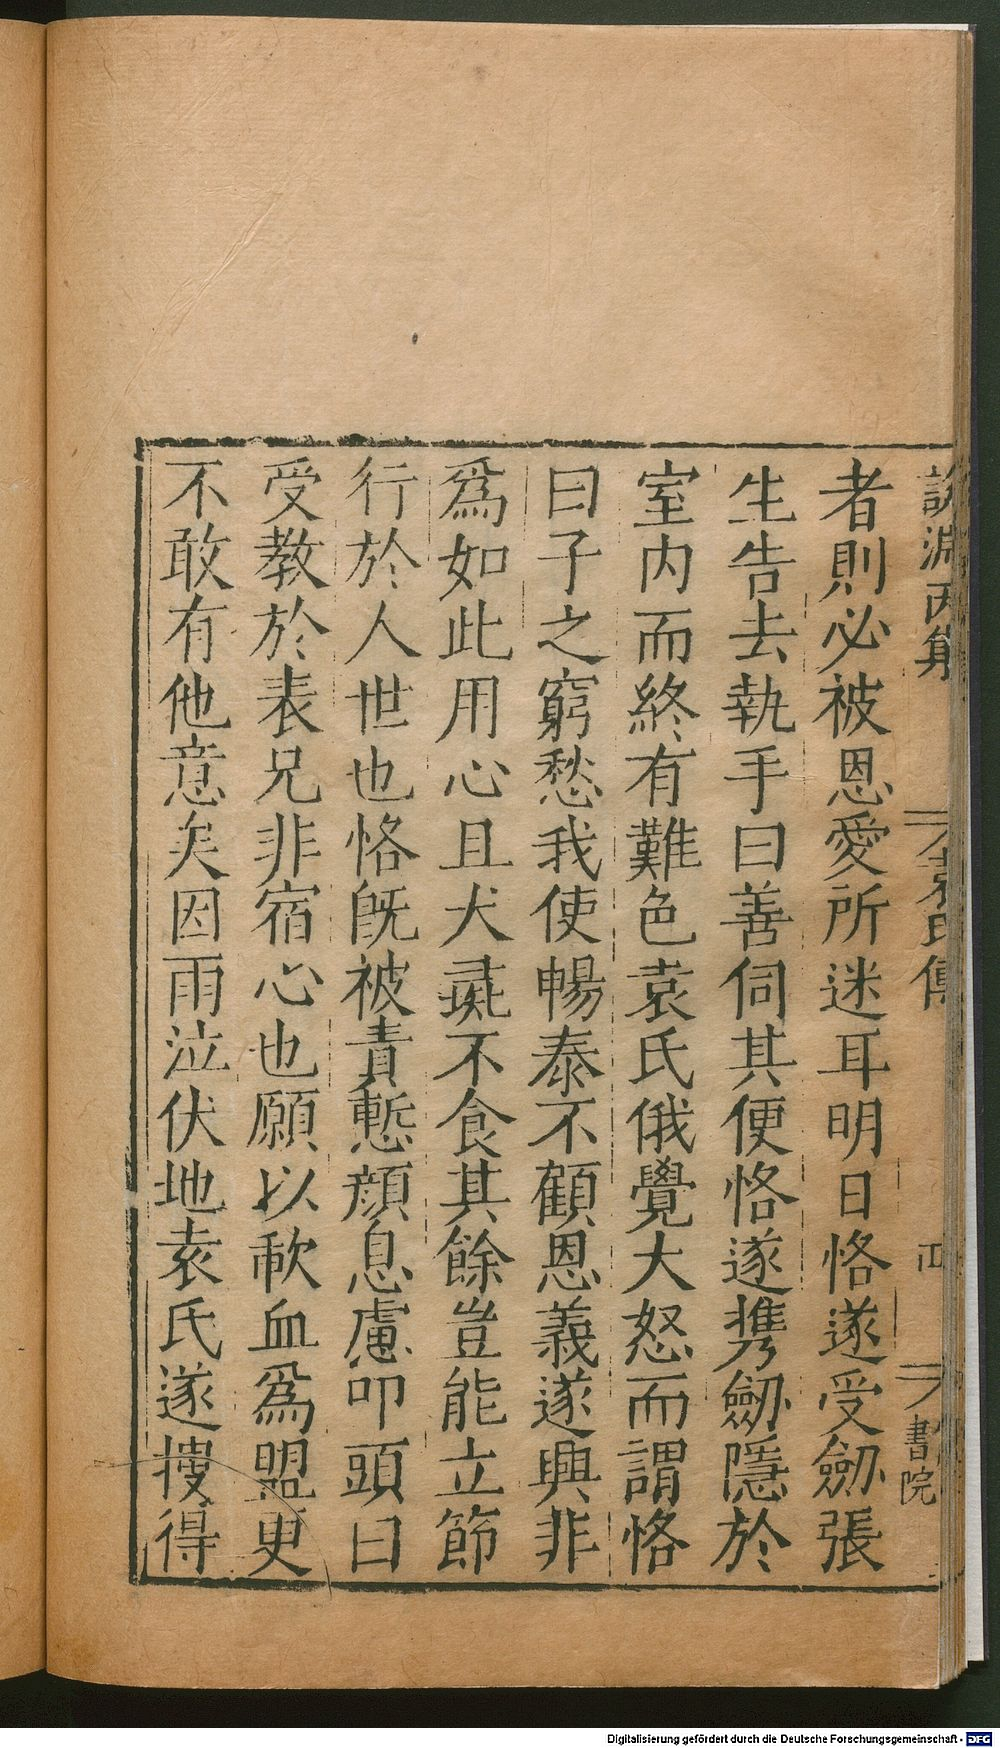 說淵丙集
袁氏傳
四
書院
者則必被恩愛所迷耳明日恪遂受劒張
生告去執手曰善伺其便恪遂携劒隱於
室内而終有難色袁氏俄覺大怒而謂恪
曰子之窮愁我使暢泰不顧恩義遂興非
爲如此用心且犬彘不食其餘豈能立節
行於人世也恪旣被責慙顔息慮叩頭曰
受教於表兄非宿心也願以歃血爲盟更
不敢有他意矣因雨泣伏地袁氏遂搜得
Digitalisierung gefördert durch die Deutsche Forschungsgemeinschaft - DFG